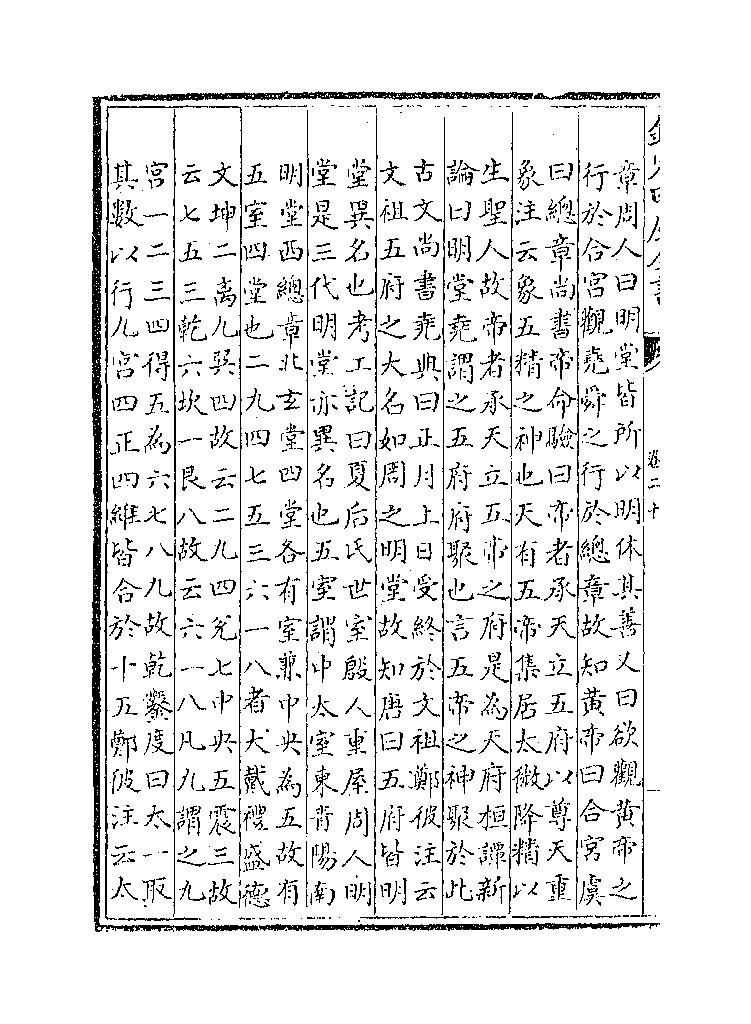 欽定四庫全書
卷二十
章周人曰明堂皆所以明休其善又曰欲觀黃帝之
行於合宮觀堯舜之行於總章故知黃帝曰合宮虞
曰總章尚書帝命驗曰帝者承天立五府以尊天重
象注云象五精之神也天有五帝集居太微降精以
生聖人故帝者承天立五帝之府是為天府桓譚新
論曰明堂堯謂之五府府聚也言五帝之神聚於此
古文尚書堯典曰正月上日受終於文祖鄭彼注云
文祖五府之大名如周之明堂故知唐曰五府皆明
堂異名也考工記曰夏后氏世室殷人重屋周人明
堂是三代明堂亦異名也五室謂中太室東青陽南
明堂西總章北玄堂四堂各有室兼中央為五故有
五室四堂也二九四七五三六一八者大戴禮盛德
文坤二离九巽四故云二九四兌七中央五震三故
云七五三乾六坎一艮八故云六一八凡九謂之九
宮一二三四得五為六七八九故乾鑿度曰太一取
其數以行九宮四正四維皆合於十五鄭彼注云太